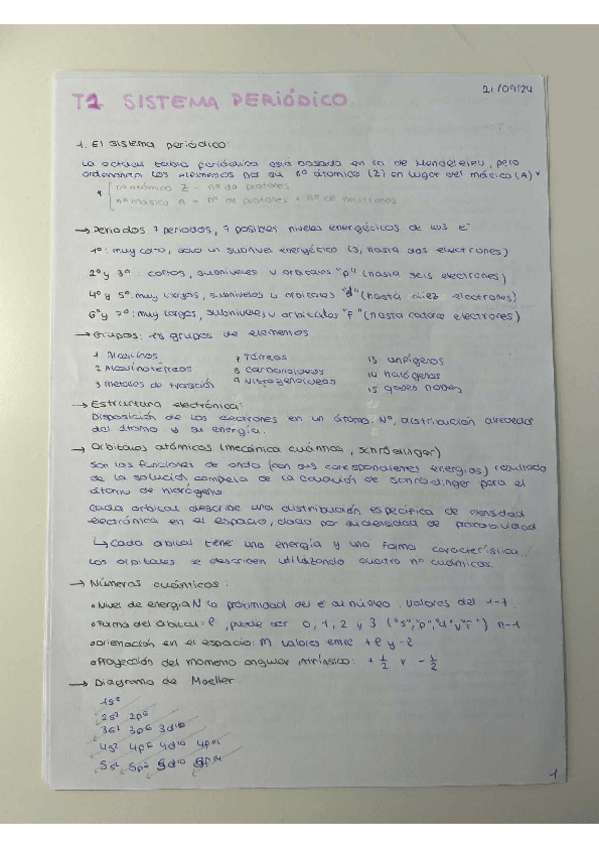 21/09/24
T1 SISTEMA PERIÓDICO
1. El sistema periódico:
La actual tabla periódica está basada en la de Mendeleiev, pero
ordenaran los elementos por su nº átomico (Z) en lugar del másico (A) *
* nº atómico Z - nº de protones
nº másico A = nº de protones + nº de neutrones
→ Periodos 7 periodos, 7 posibles niveles energéticos de los e⁻
1º: muy corto, solo un subnivel energético (s, hasta dos electrones)
2º y 3º: cortos, subniveles u orbitales "p" (hasta seis electrones)
4º y 5º: muy largos, subniveles u orbitales "d" (hasta diez electrones)
6º y 7º: muy largos, subniveles u orbitales "f" (hasta catorce electrones)
→ Grupos: 18 grupos de elementos
1 Alcalinos 7 Térreos 13 anfígenos
2 Alcalinotérreos 8 carbonoideos 14 halógenos
3 metales de transición 9 Nitrogenoideos 15 gases nobles
→ Estructura electrónica:
Disposición de los electrones en un átomo: Nº, distribución alrededor
del átomo y su energía.
→ Orbitales atómicos (mecánica cuántica, schrödinger)
Son las funciones de onda (con sus correspondientes energías) resultado
de la solución completa de la ecuación de schrödinger para el
átomo de hidrógeno
Cada orbital describe una distribución específica de densidad
electrónica en el espacio, dado por su densidad de probabilidad
↳ Cada orbital tiene una energía y una forma característica
Los orbitales se describen utilizando cuatro nº cuánticos.
→ Números cuánticos:
• Nivel de energía N la proximidad del e⁻ al núcleo. Valores del 1-7
• Forma del orbital: ℓ, puede ser 0, 1, 2 y 3 ("s","p","d"y"f") n-1
• orienación en el espacio: M valores +ℓ y -ℓ
• Proyección del momento angular intrínsico: + 1/2 y - 1/2
→ Diagrama de Moeller
1s²
2s² 2p⁶
3s² 3p⁶ 3d¹⁰
4s² 4p⁶ 4d¹⁰ 4f¹⁴
5s² 5p⁶ 5d¹⁰ 5f¹⁴
1